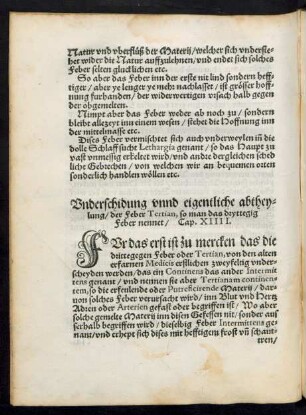 Natur vnd vberflüß der Materij/welcher sich vnderste-
het wider die Natur auffzulehnen/vnd endet sich solches
Feber selten glücklichen etc.
So aber das Feber inn der erste nit lind sondern heff-
tiger/aber ye lenger ye mehr nachlasset/ist grösser hoff-
nung furhanden/der widerwertigen vrsach halb gegen
der obgemelten.
Nimpt aber das Feber weder ab noch zu/sondern
bleibt allezeyt inn einem wesen/stehet die Hoffnung inn
der mittelmasse etc.
Dises Feber vermischtet sich auch vnderweylen iñ die
dolle Schlaffsucht Lethargia genant/so das Haupt zu
vast vnmessig erkeltet wird/vnd andre dergleichen sched-
liche Gebrechen/von welchen wir an bequemen orten
sonderlich handlen wöllen etc.
Vnderschidung vnnd eigentliche abthey-
lung/der Feber Tertian, so man das dryttegig
Feber nennet/ Cap. XIIII.
FVr das erst ist zu mercken das die
drittegegen Feber oder Tertian, von den alten
erfarnen Medicis erstlichen zweyfeltig vnder-
scheyden werden/das ein Continens das ander Intermit
tens genant/vnd nennen sie aber Tertianam continen-
tem, so die erfeulende oder Putreficirende Materij/dar-
uon solches Feber verursacht wird/inn Blut vnd Hertz
Adren oder Arterien gefast oder begriffen ist/Wo aber
solche gemelte Materij inn disen Gefessen nit/sonder aus-
serhalb begriffen wird/dieselbig Feber Intermittens ge-
nant/vnd erhept sich dises mit hefftigem frost vñ schaut-
tren/